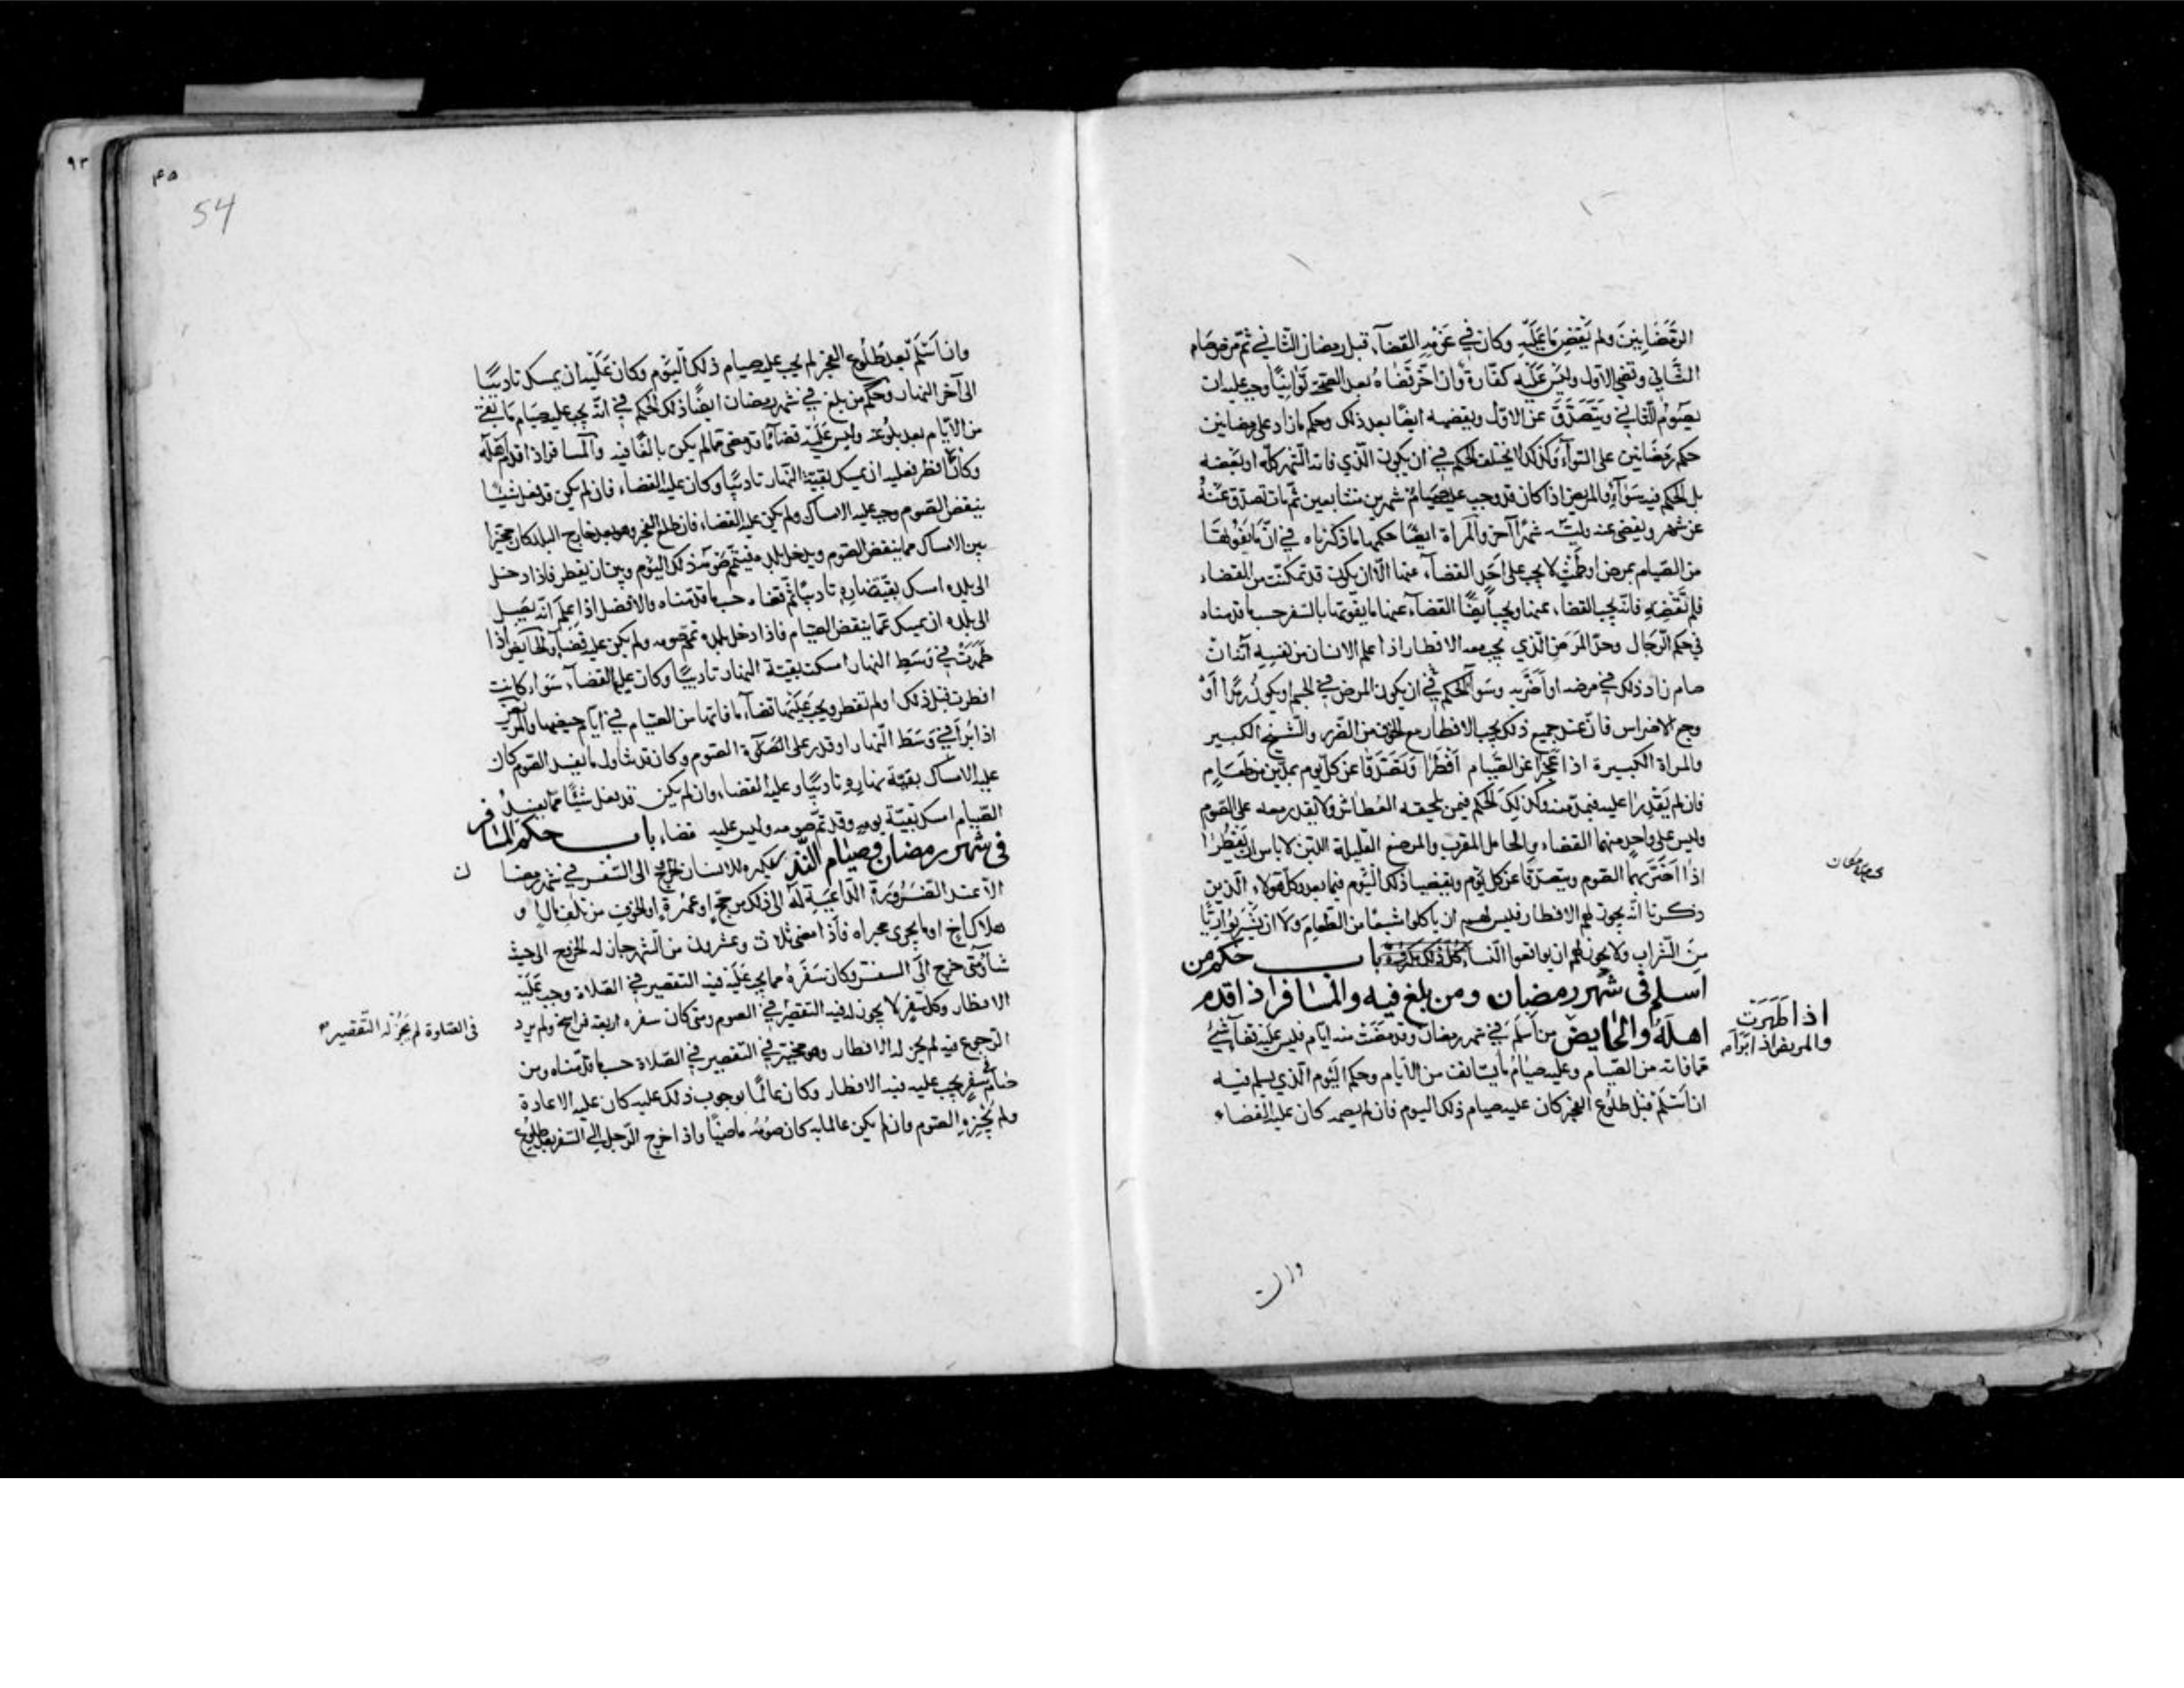 الرمضانين ولم يقض ما عليه وكان في عزمه القضاء قبل رمضان الثاني ثم مرض صام
الثاني وقضى الاول وليس عليه كفارة وان اخر قضاه بعد الصحة توانيا وجب عليه ان
يصوم الثاني ويتصدق عن الاول ويقضيه ايضا بعد ذلك وحكم ما زاد على رمضانين
حكم رمضانين على السواء وكذلك لا يختلف الحكم في ان يكون الذي فاته الشهر كله او بعضه
بل الحكم فيه سواء والمريض اذا كان قد وجب عليه صيام شهرين متتابعين ثم مات تصدق عنه
عن شهر ويقضي عنه وليه شهرا آخر والمراة ايضا حكمها ما ذكرناه في ان ما يفوتها
من الصيام بمرض او طمث لا يجب على احد القضاء عنها الا ان يكون قد تمكنت من القضاء
فلم تقضه فانه يجب القضاء عنها ويجب ايضا القضاء عنها ما يفوتها بالسفر حسب ما قدمناه
في حكم الرجال وحد المرض الذي يجب معه الافطار اذا علم الانسان من نفسه انه ان
صام زاد ذلك في مرضه او اضر به وسواء الحكم في ان يكون المرض في الجسم او يكون رمدا او
وجع الاضراس فان عند جميع ذلك يجب الافطار مع الخوف من الضرر والشيخ الكبير
والمراة الكبيرة اذا عجزا عن الصيام افطرا وتصدقا عن كل يوم بمدين من طعام
فان لم يقدرا عليه فبمد منه وكذلك الحكم فيمن يلحقه العطاش ولا يقدر معه على الصوم
وليس على واحد منهما القضاء والحامل المقرب والمرضع القليلة اللبن لا باس ان يفطرا
اذا اضر بهما الصوم ويتصدقا عن كل يوم ويقضيا ذلك اليوم فيما بعد وكل هولاء الذين
ذكرنا انه يجوز لهم الافطار فليس لهم ان ياكلوا شبعا من الطعام ولا ان يشربوا ريا
من الشراب ولا يجوز لهم ان يواقعوا النساء باب حكم من
اسلم في شهر رمضان ومن بلغ فيه والمسافر اذا قدم
اهله والحايض من اسلم في شهر رمضان وقد مضت منه ايام فليس عليه قضاء شئ
اذا طهرت
والمريض اذا ابرأ
مما فاته من الصيام وعليه صيام ما يستانف من الايام وحكم اليوم الذي يسلم فيه
ان اسلم قبل طلوع الفجر كان عليه صيام ذلك اليوم فان لم يصمه كان عليه القضاء
وان
٩٣
٤٥
54
وان اسلم بعد طلوع الفجر لم يجب عليه صيام ذلك اليوم وكان عليه ان يمسك تاديبا
الى آخر النهار وحكم من بلغ في شهر رمضان ايضا ذلك الحكم في انه يجب عليه صيام ما بقي
من الايام بعد بلوغه وليس عليه قضاء ما قد مضى مما لم يكن بالغا فيه والمسافر اذا قدم اهله
وكان افطر فعليه ان يمسك بقية النهار تاديبا وكان عليه القضاء فان لم يكن قد فعل شيئا
ينقض الصوم وجب عليه الامساك ولم يكن عليه القضاء فان طلع الفجر وهو بعد خارج البلد كان مخيرا
بين الامساك مما ينقض الصوم ويدخل بلده فيتمم صومه ذلك اليوم وبين ان يفطر فاذا دخل
الى بلده امسك بقية نهاره تاديبا ثم قضاه حسب ما قدمناه والافضل اذا علم انه يصل
الى بلده ان يمسك عما ينقض الصيام فاذا دخل بلده تمم صومه ولم يكن عليه قضاء والحايض اذا
طهرت في وسط النهار امسكت بقية النهار تاديبا وكان عليها القضاء سواء كانت
افطرت قبل ذلك او لم تفطر ويجب عليها قضاء ما فاتها من الصيام في ايام حيضها والمريض
اذا برأ في وسط النهار او قدر على الصوم وكان قد تناول ما يفسد الصوم كان
عليه الامساك بقية نهاره تاديبا وعليه القضاء وان لم يكن قد فعل شيئا مما يفسد
الصيام امسك بقية يومه وقد تم صومه وليس عليه قضاء باب حكم المسافر
في شهر رمضان وصيام النذر يكره للانسان الخروج الى السفر في شهر رمضان
الا عند الضرورة الداعية له الى ذلك من حج او عمرة او الخوف من تلف مال او
هلاك اخ او ما يجري مجراه فاذا مضى ثلاث وعشرون من الشهر جاز له الخروج الى حيث
شاء ومتى خرج الى السفر وكان سفره مما يجب عليه فيه التقصير في الصلاة وجب عليه
الافطار وكل سفر لا يجوز له فيه التقصير في الصوم ومتى كان سفره اربعة فراسخ ولم يرد
في الصلوة لم يجز له التقصير
الرجوع فيه لم يجز له الافطار وهو مخير في التقصير في الصلاة حسب ما قدمناه ومن
صام في سفر يجب عليه فيه الافطار وكان عالما بوجوب ذلك عليه كان عليه الاعادة
ولم يجزه الصوم وان لم يكن عالما به كان صومه ماضيا واذا خرج الرجل الى السفر بعد طلوع